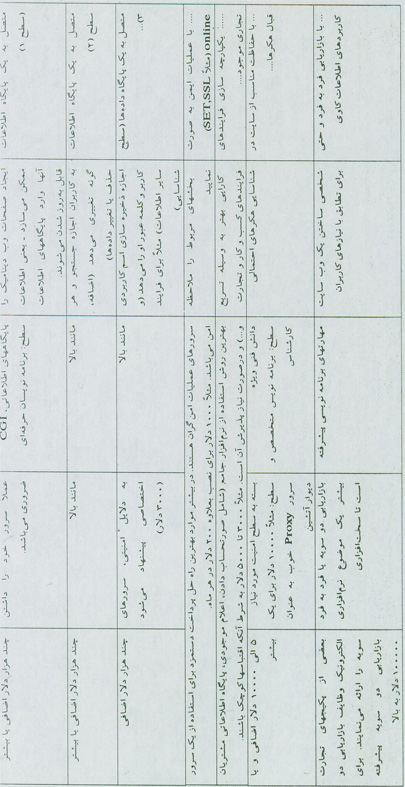 متصل به یک پایگاه اطلاعات
(سطح ۱)
ایجاد صفحات وب دینامیک را
ممکن می‌سازد - یعنی اطلاعات
آنها وارد پایگاههای اطلاعات
قابل به‌روز شدن می‌شوند.
پایگاههای اطلاعاتی، CGI
سطح: برنامه نویسان حرفه‌ای
عملا سرور خود را داشتن
ضروری می‌باشد.
چند هزار دلار اضافی یا بیشتر
متصل به یک پایگاه اطلاعات
سطح (۲)
به کاربران اجازه جستجو و هر
گونه تغییری می‌دهد (اضافه،
حذف یا تغییر داده‌ها)
مانند بالا
مانند بالا
چند هزار دلار اضافی یا بیشتر
متصل به یک پایگاه داده‌ها (سطح
۳)...
اجازه ذخیره سازی اسم کاربردی
کاربر و کلمه عبور او را می‌دهد (و
سایر اطلاعات) مثلاً برای فرایند
شناسایی)
مانند بالا
به دلایل امنیتی، سرورهای
اختصاصی پیشنهاد می‌شود
(۳۰۰۰ دلار)
چند هزار دلار اضافی
.... با عملیات ایمن به صورت
online (مثلاً SET,SSL)
بخشهای مربوط را ملاحظه
نمایید
سرورهای عملیات امن گران هستند. در بیشتر موارد بهترین راه حل پرداخت دستمزد برای استفاده از یک سرور
امن می‌باشد. مثلاً ۱۰۰۰ دلار برای نصب بعلاوه ۲۰۰ دلار در هر ماه.
..... یکپارچه سازی فرایندهای
تجاری موجود....
کارایی بهتر به وسیله تسریع
فرایندهای کسب و کار و تجارت
بهترین روش استفاده از نرم‌افزار جامع (شامل صورتحساب دادن، اعلام موجودی، پایگاه اطلاعاتی مشتریان
و...) و درصورت نیاز پذیرش آن است. مثلاً ۳۰۰۰ تا ۵۰۰۰ دلار به شرط آنکه اقتباسها کوچک باشند.
... با حفاظت مناسب از سایت در
قبال هکرها....
شناسایی هکرهای احتمالی
دانش فنی ویژه
سطح: برنامه نویس متخصص و
کارشناس
بسته به سطح امنیت مورد نیاز
سطح: مثلاً ۱۰۰۰۰ دلار برای یک
سرور Proxy خوب به عنوان
دیوار آتشین
۵ الی ۱۰۰۰۰ دلار اضافی و یا
بیشتر
... با بازاریابی فرد به فرد و حتی
کاربردهای اطلاعات کاوی
شخصی ساختن یک وب سایت
برای تطابق با نیازهای کاربران
مهارتهای برنامه نویسی پیشرفته
بازاریابی دو سویه یا فرد به فرد
بیشتر یک موضوع نرم‌افزاری
است تا سخت‌افزاری
بعضی از پکیجهای تجارت
الکترونیک وظایف بازاریابی دو
سویه را ارائه می‌نمایند. برای
بازاریابی دو سویه پیشرفته
۱۰۰۰۰۰ دلار به بالا